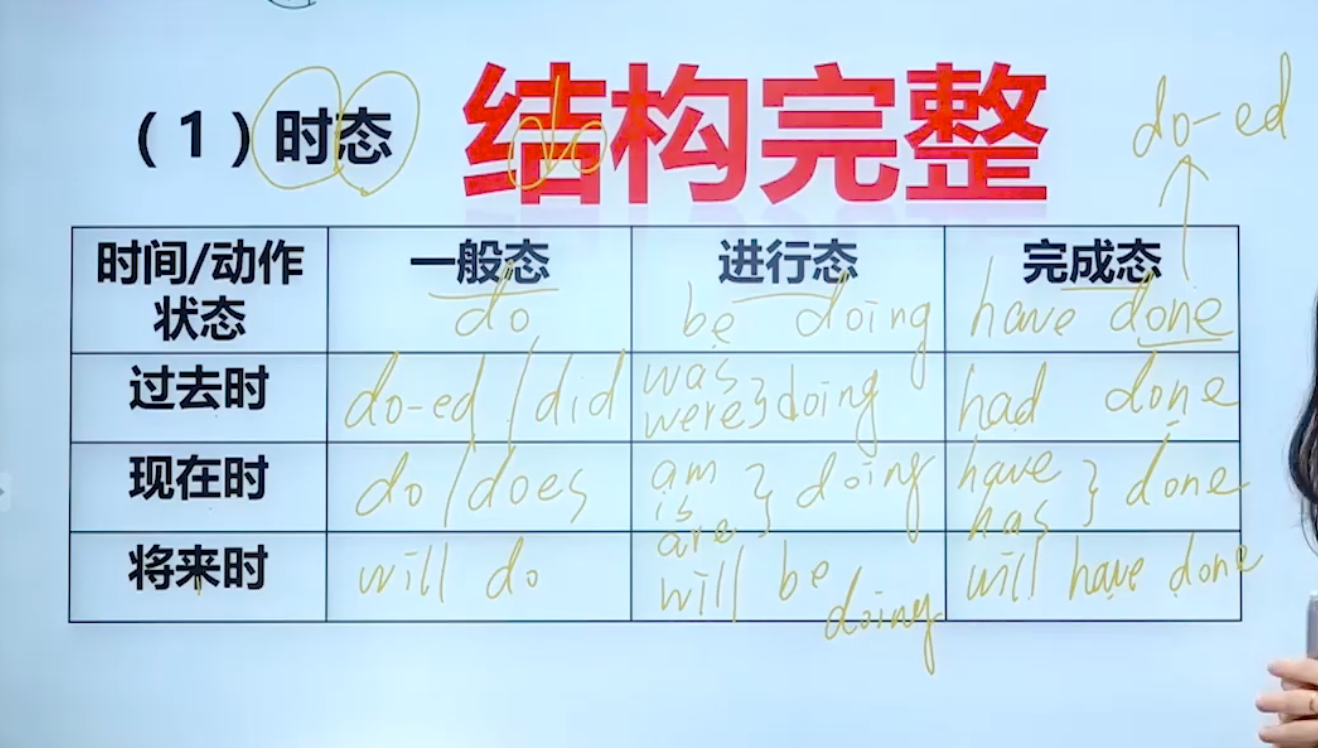 （1）时态 结构完整
do
do-ed
时间/动作状态 一般态 进行态 完成态
do be doing have done
过去时 do-ed / did was were } doing had done
现在时 do / does am is are } doing have has } done
将来时 will do will be doing will have done